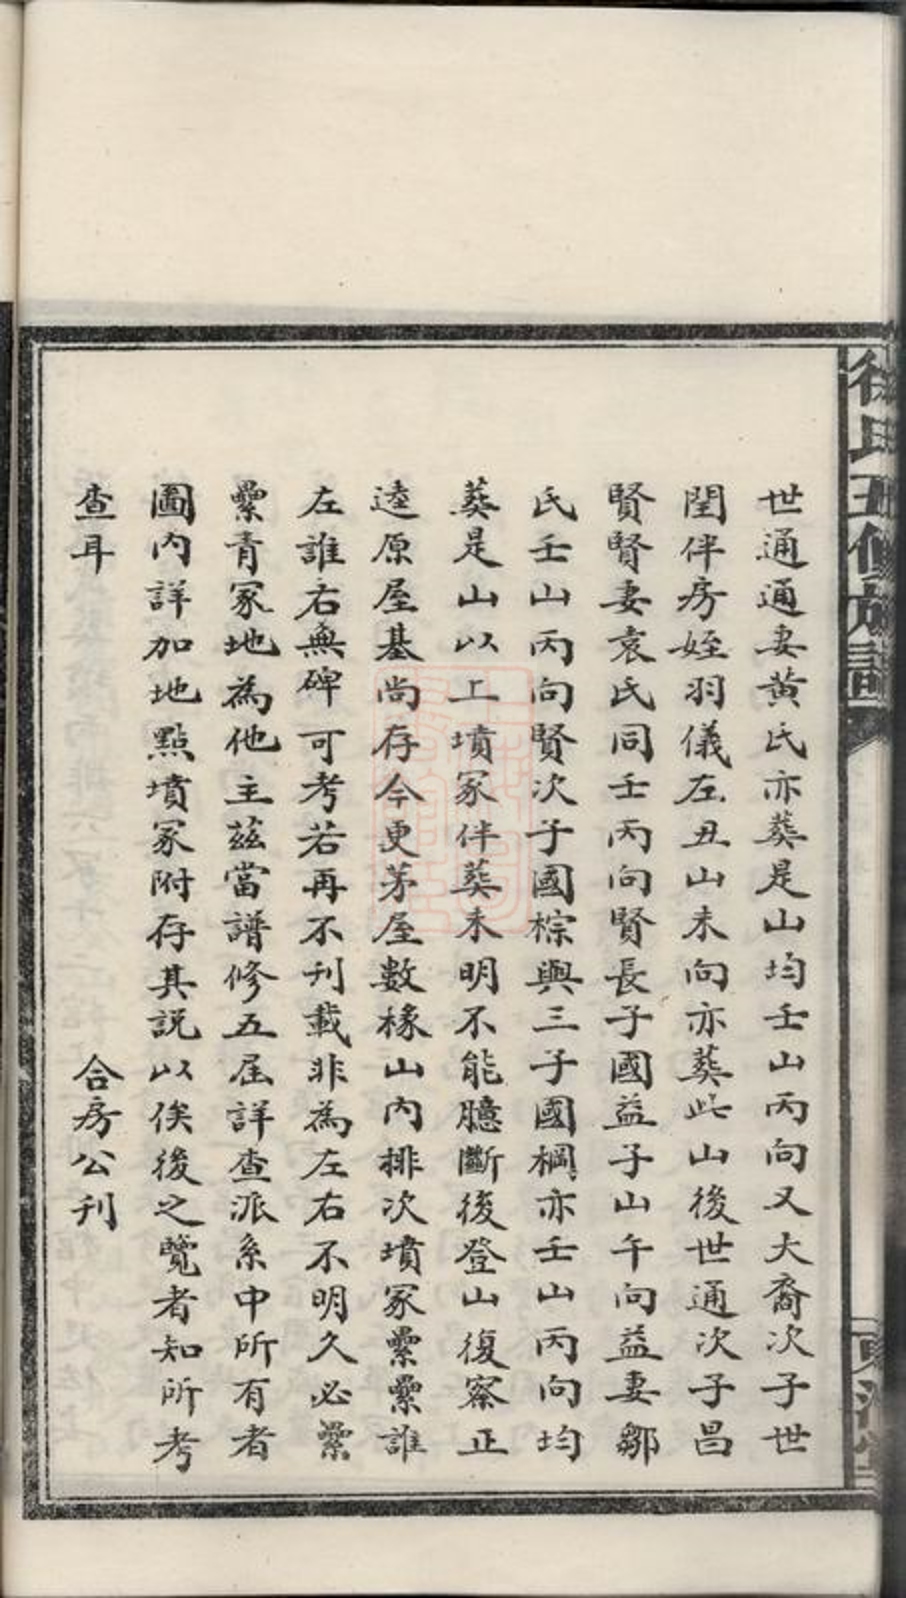 徐氏五修族譜
世通通妻黄氏亦葬是山均壬山丙向又大裔次子世
閏伴房姪羽儀左丑山未向亦葬此山後世通次子昌
賢賢妻袁氏同壬丙向賢長子國益子山午向益妻鄒
氏壬山丙向賢次子國棕與三子國棡亦壬山丙向均
葬是山以上墳冢伴葬未明不能臆斷後登山復察正
逵原屋基尚存今更茅屋數椽山内排次墳冢纍纍誰
左誰右無碑可考若再不刊載非為左右不明久必纍
纍青冢地為他主茲當譜修五屆詳查派系中所有者
圖内詳加地點墳冢附存其説以俟後之覽者知所考
查耳
合房公刊